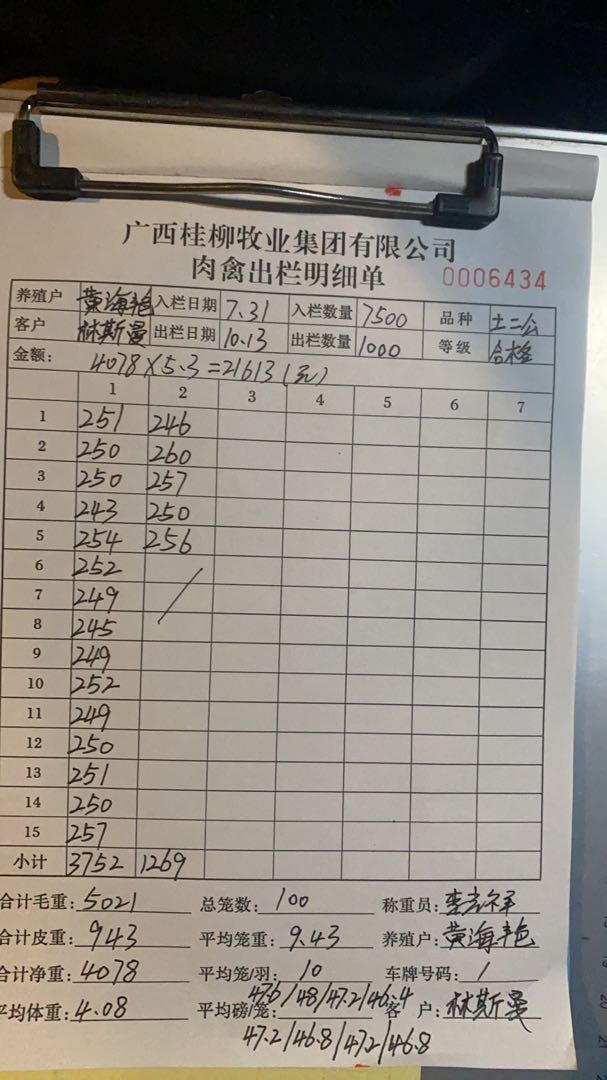 广西桂柳牧业集团有限公司
肉禽出栏明细单 0006434
养殖户 黄海艳 入栏日期 7.31 入栏数量 7500 品种 土二公
客户 林斯曼 出栏日期 10.13 出栏数量 1000 等级 合格
金额: 4078×5.3=21613(元)
1 2 3 4 5 6 7
1 251 246
2 250 260
3 250 257
4 243 250
5 254 256
6 252
7 249
8 245
9 249
10 252
11 249
12 250
13 251
14 250
15 257
小计 3752 1269
合计毛重: 5021 总笼数: 100 称重员:
合计皮重: 943 平均笼重: 9.43 养殖户: 黄海艳
合计净重: 4078 平均笼/羽: 10 车牌号码: /
平均体重: 4.08 平均磅/笼: 47.6/48/47.2/46.4 客户: 林斯曼
47.2/46.8/47.2/46.8